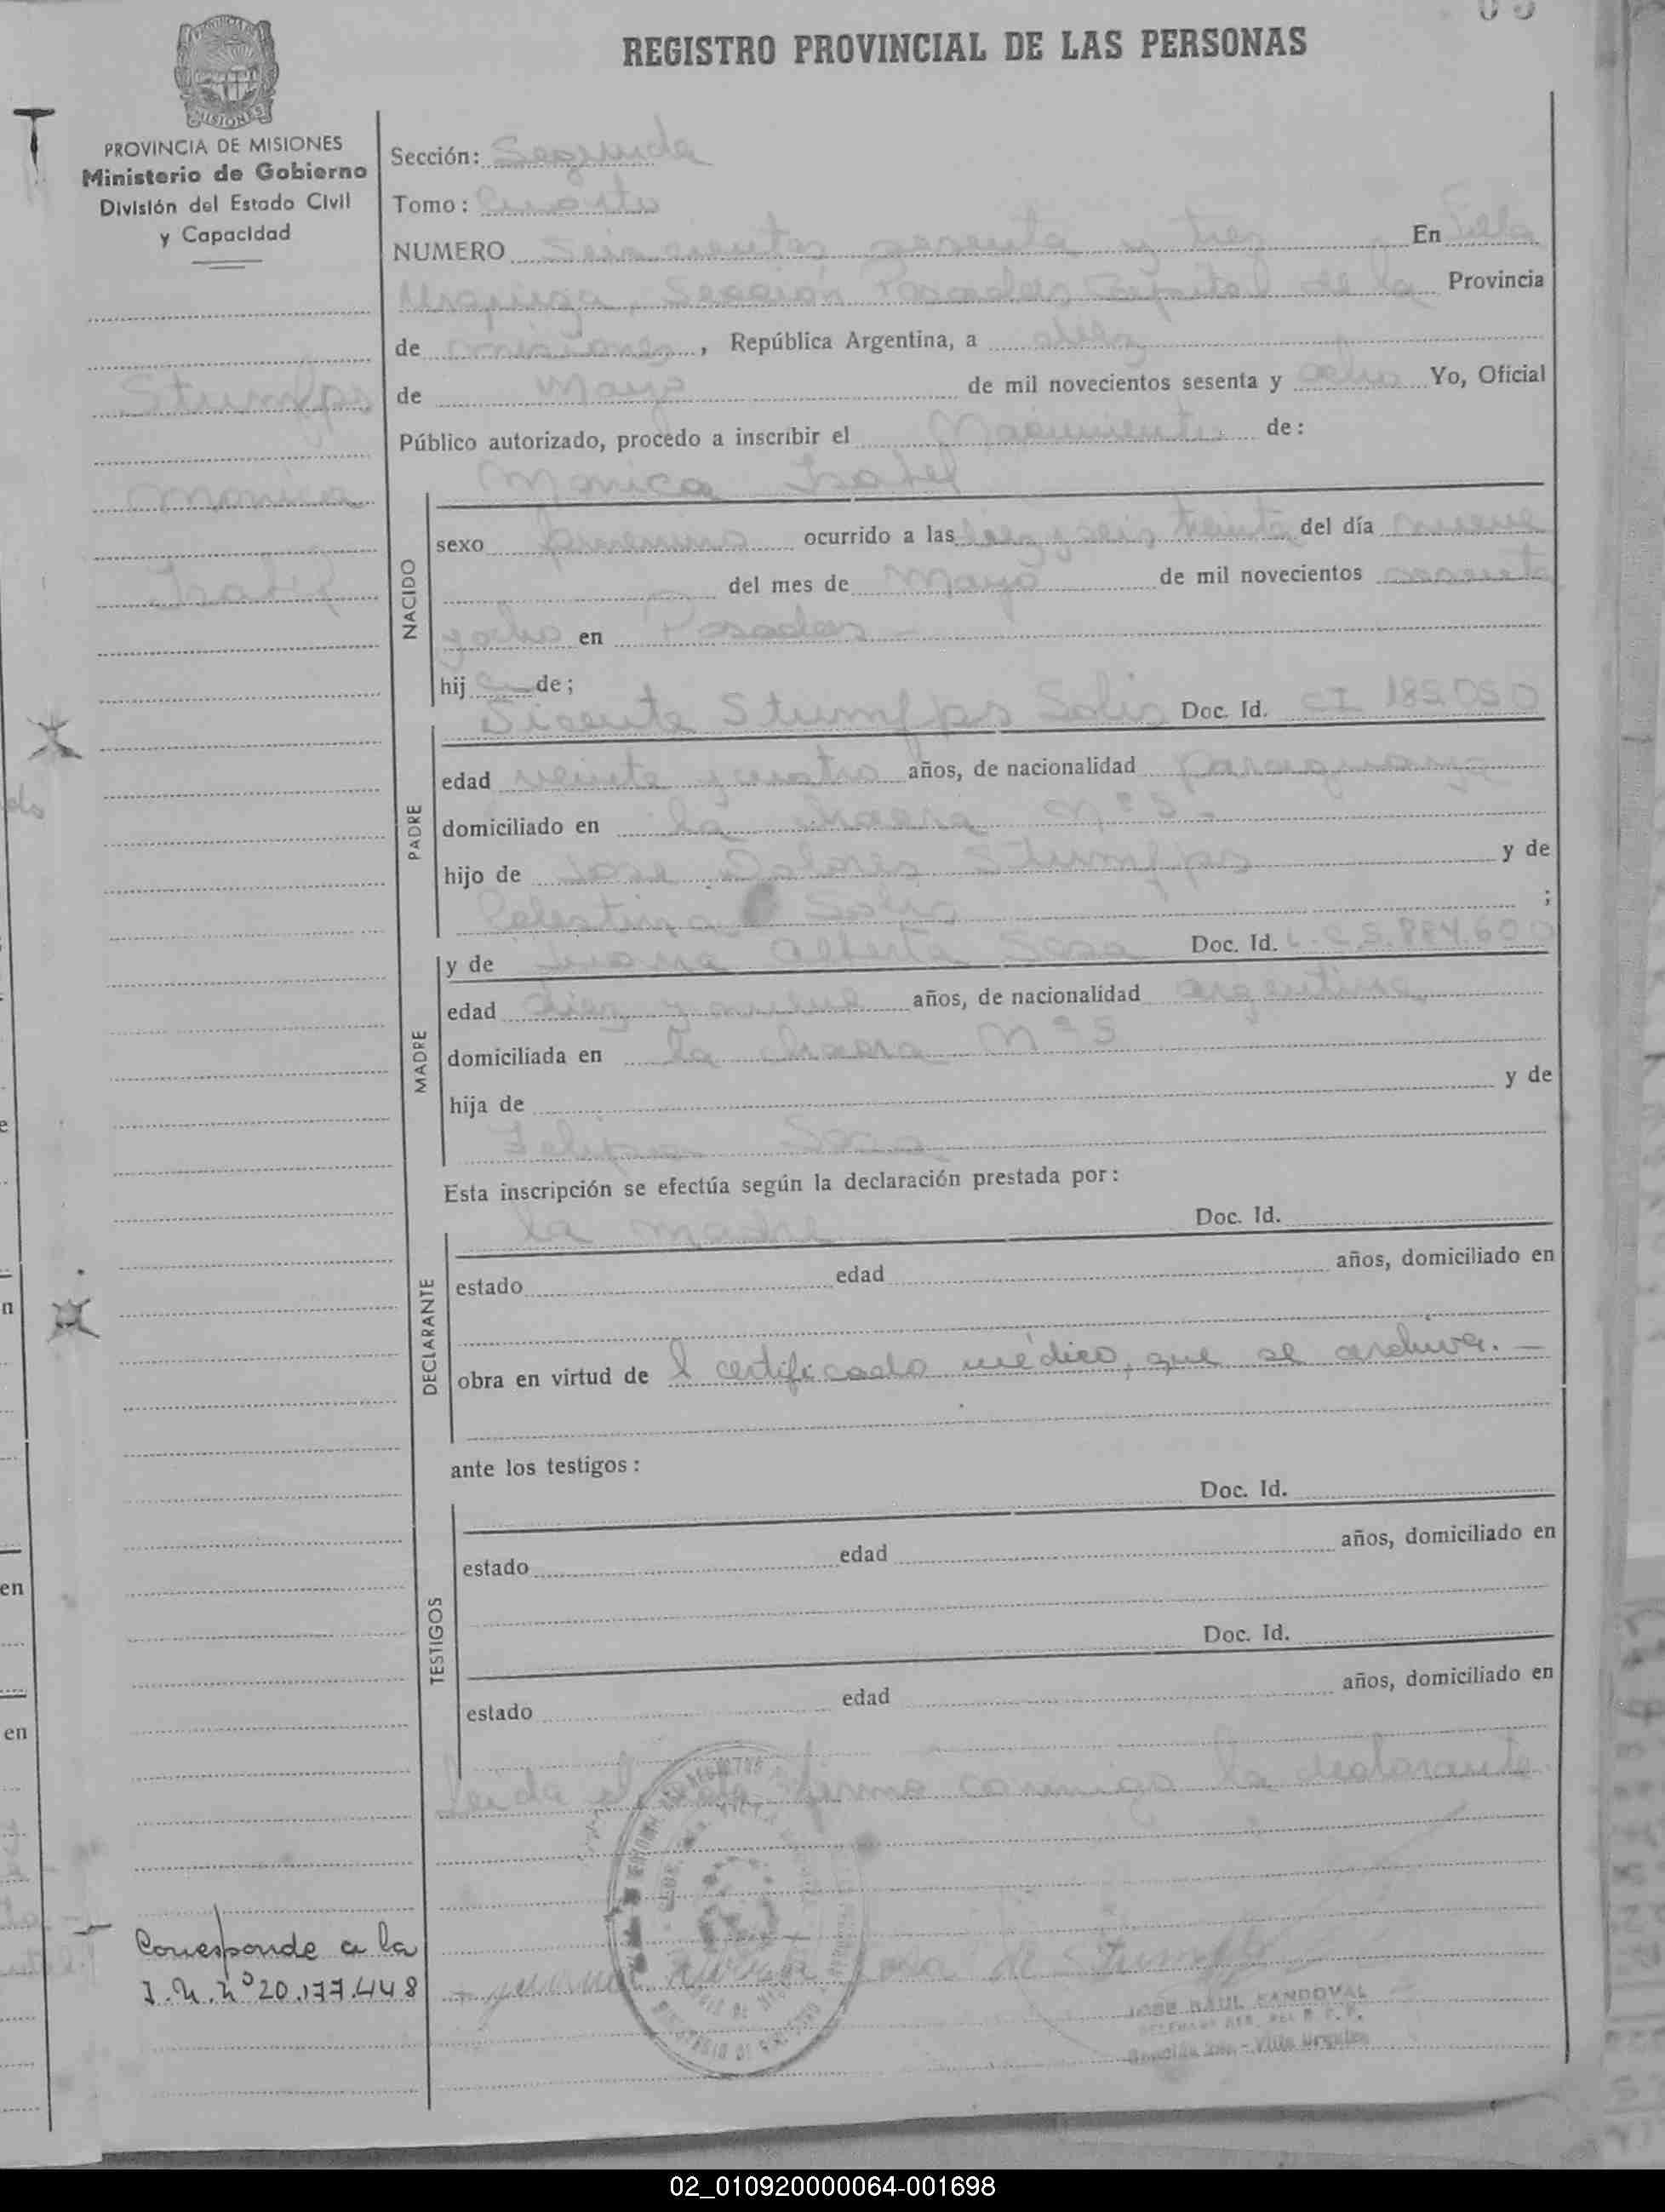 REGISTRO PROVINCIAL DE LAS PERSONAS
MISIONES
PROVINCIA DE MISIONES
Ministerio de Gobierno
División del Estado Civil
y Capacidad
Stumpfs
Monica
Isabel
Corresponde a la
I.N. Nº 20.177.448
Sección: Segunda
Tomo: Cuarto
NUMERO Seiscientos sesenta y tres En Villa
Urquiza, Sección Posadas Capital de la Provincia
de Misiones, República Argentina, a diez
de Mayo de mil novecientos sesenta y ocho Yo, Oficial
Público autorizado, procedo a inscribir el Nacimiento de:
Monica Isabel
NACIDO
sexo femenino ocurrido a las diez y seis treinta del día nueve
del mes de Mayo de mil novecientos sesenta
y ocho en Posadas
hija de;
PADRE
Stumpfs Solis Doc. Id. CI 182050
edad veinte y cuatro años, de nacionalidad paraguaya
domiciliado en la chacra Nº 5 -
hijo de Jose Stumpfs y de
Celestina Solis ;
MADRE
y de Juana Alberta Sosa Doc. Id. L.C 5.884.600
edad diez y nueve años, de nacionalidad argentina
domiciliada en la chacra Nº 5
hija de y de
Felipa Sosa
Esta inscripción se efectúa según la declaración prestada por:
DECLARANTE
la madre - Doc. Id.
estado edad años, domiciliado en
obra en virtud de l certificado médico, que se archiva. -
ante los testigos:
TESTIGOS
Doc. Id.
estado edad años, domiciliado en
Doc. Id.
estado edad años, domiciliado en
Leida el acta firma conmigo la declarante
Sosa de Stumpfs
JOSE RAUL SANDOVAL
Villa Urquiza
02_010920000064-001698